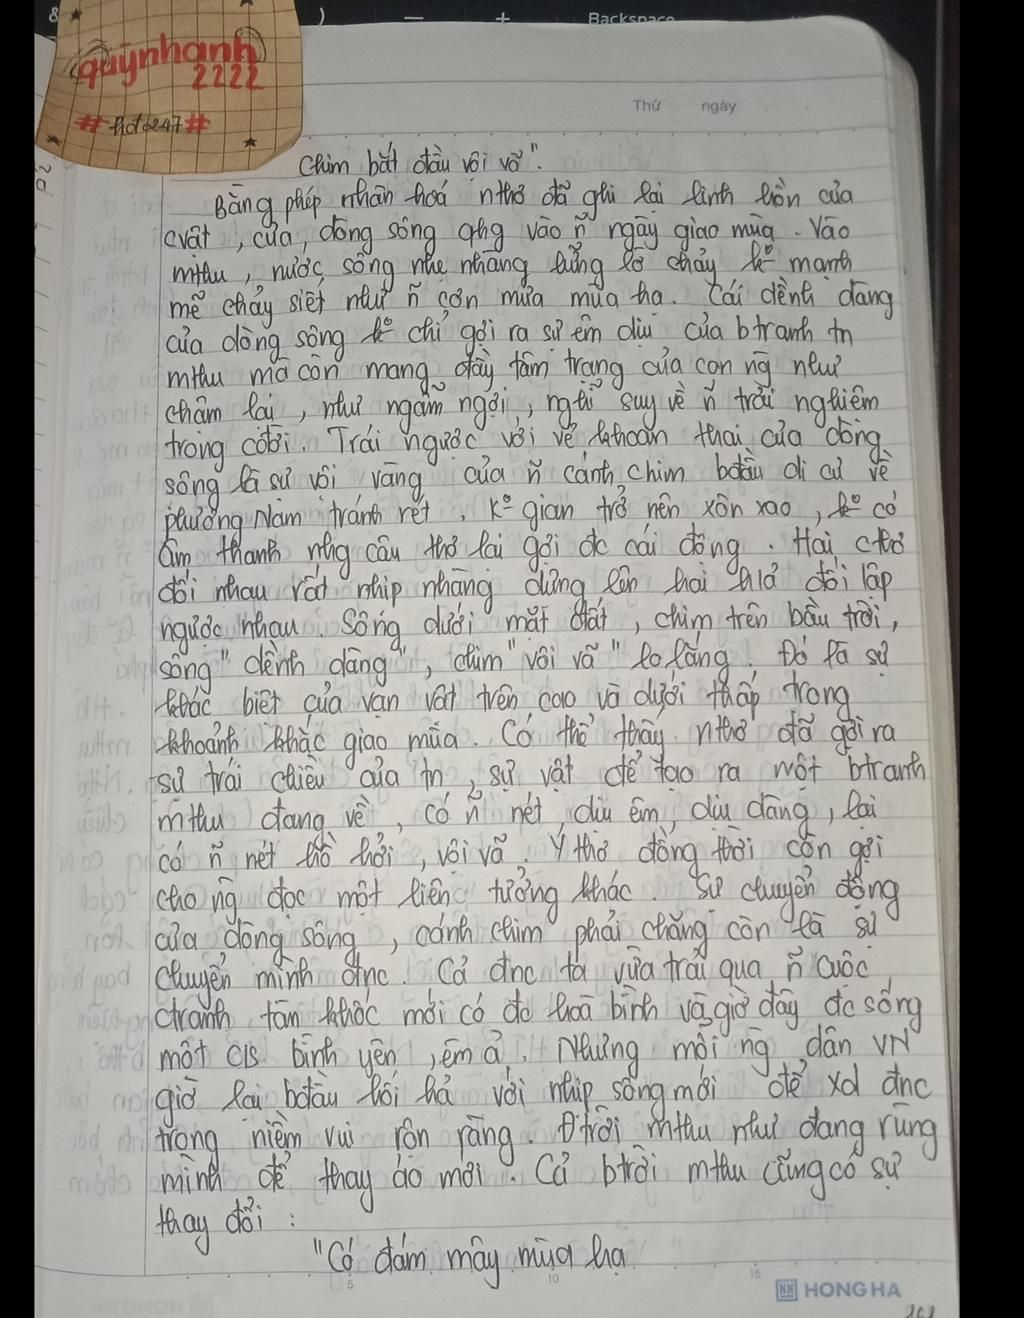 8 ) — + Backspace
quỳnhanh
2222
# hot247 #
Thứ ngày
Chim bắt đầu vội vã".
Bằng phép nhân hoá nthơ đã ghi lại linh hồn của
cvật, của, dòng sông qhg vào ñ ngày giao mùa. Vào
mthu, nước sông nhẹ nhàng lững lờ chảy ko mạnh
mẽ chảy siết như ñ cơn mưa mùa hạ. Cái dềnh dàng
của dòng sông ko chỉ gợi ra sự êm dịu của btranh tn
mthu mà còn mang đầy tâm trạng của con ng như
chậm lại, như ngẫm ngợi, nghĩ suy về ñ trải nghiệm
trong cđời. Trái ngược với vẻ khoan thai của dòng
sông là sự vội vàng của ñ cánh chim bđầu di cư về
phương Nam tránh rét. Ko gian trở nên xôn xao, ko có
âm thanh nhg câu thơ lại gợi đc cái động. Hai cthơ
đối nhau rất nhịp nhàng dựng lên hai h/ả đối lập
ngược nhau. Sông dưới mặt đất, chim trên bầu trời,
sông "dềnh dàng", chim "vội vã" lo lắng. Đó là sự
khác biệt của vạn vật trên cao và dưới thấp trong
khoảnh khắc giao mùa. Có thể thấy nthơ đã gợi ra
sự trái chiều của tn, sự vật để tạo ra một btranh
mthu đang về, có ñ nét dịu êm, dịu dàng, lại
có ñ nét hồ hởi, vội vã. Ý thơ đồng thời còn gợi
cho ng đọc một liên tưởng khác. Sự chuyển động
của dòng sông, cánh chim phải chăng còn là sự
chuyển mình đnc. Cả đnc ta vừa trải qua ñ cuộc
ctranh tàn khốc mới có đc hoà bình và giờ đây đc sống
một c/s bình yên, êm ả. Nhưng mỗi ng dân VN
giờ lại bđầu hối hả với nhịp sống mới để xd đnc
trong niềm vui rộn ràng. Đtrời mthu như đang rùng
mình để thay áo mới. Cả btrời mthu cũng có sự
thay đổi :
"Có đám mây mùa hạ
5 10 15
HH HONG HA